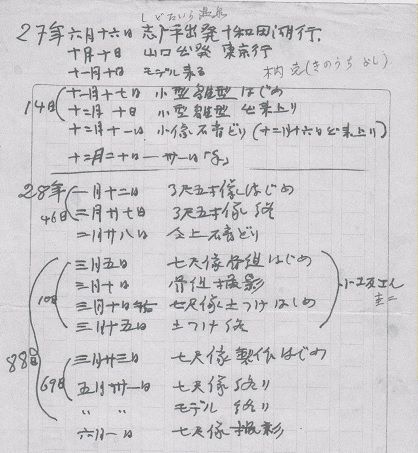 しどたいら温泉
27年六月十六日 志戸平出発十和田湖行、
十月十日 山口出発 東京行
十一月十日 モデル来る 木内克(きのうちよし)
14日 十一月十七日 小型雛型はじめ
十二月十日 小型雛型出来上り
十二月十一日 小像石膏どり(十二月十六日出来上り)
十二月二十日—廿一日「手」
28年 一月十二日 3尺五寸像はじめ
46日 二月廿七日 3尺五寸像終
二月廿八日 仝上石膏どり
三月五日 七尺像骨組はじめ
10日 三月十日 骨組撮影 小坂さん
三月十日 七尺像土つけはじめ 圭二
三月十五日 土つけ終
88日 三月廿三日 七尺像製作はじめ
69日 五月卅一日 七尺像終り
〃 〃 モデル 終り
六月一日 七尺像撮影